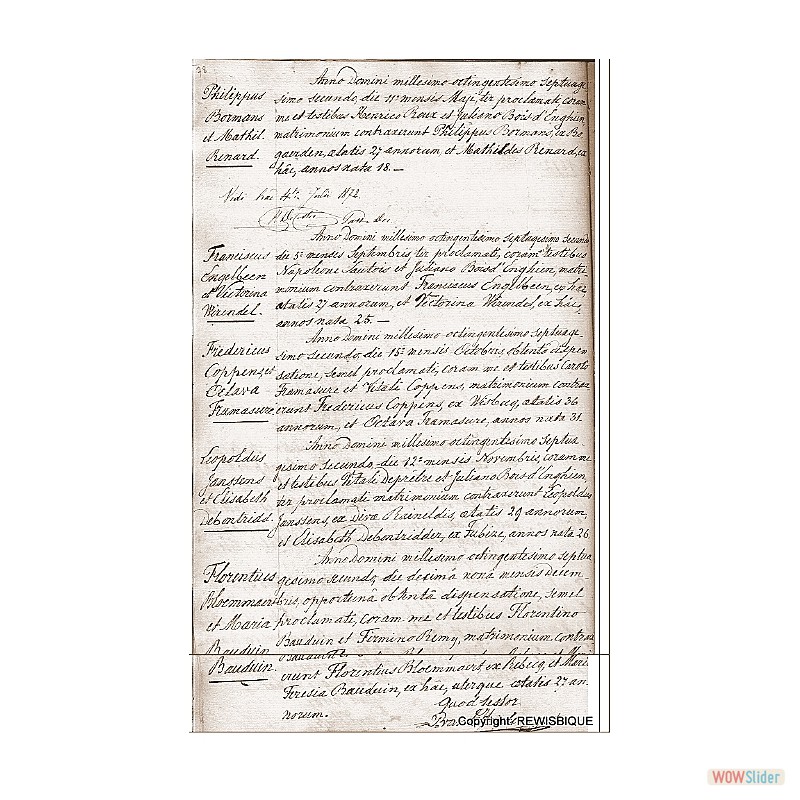 38
Anno Domini millesimo octingentesimo Septuage-
Philippus
Bormans
et Mathil.
Renard.
simo secundo, die 11ª mensis Maji, ter proclamati, coram
me et testibus Henrico Roux et Juliano Bois d'Enghien
matrimonium contraxerunt Philippus Bormans, ex Bo-
gaerden, ætatis 27 annorum, et Mathildes Renard, ex
hâc, annos nata 18. —
Vidi hac 4ta Julii 1872.
Franciscus
Engelbeen
et Victorina
Wirendel.
Anno Domini millesimo octingentesimo Septuagesimo secundo
die 5ª mensis Septembris, ter proclamati, coram testibus
Napoleone Sautois et Juliano Bois d'Enghien, matri-
monium contraxerunt Franciscus Engelbeen, ex hac
ætatis 27 annorum, et Victorina Wirendel, ex hâc,
annos nata 25. —
Fredericus
Coppens, et
Octava
Framasure
Anno Domini millesimo octingentesimo Septuage-
simo secundo, die 15ª mensis Octobris, obtentâ dispen-
satione, semel proclamati, coram me et testibus Carolo
Framasure et Vitale Coppens, matrimonium contrax-
erunt Fredericus Coppens, ex Wisbecq, ætatis 36
annorum, et Octava Framasure, annos nata 31
Leopoldus
Janssens
et Elisabeth
Debontridd.
Anno Domini millesimo octingentesimo Septua-
gesimo secundo, die 12ª mensis Novembris, coram me
et testibus Vitale Deprêtre et Juliano Bois d'Enghien,
ter proclamati matrimonium contraxerunt Leopoldus
Janssens, ex Divæ Raineldis, ætatis 29 annorum,
et Elisabeth Debontridder, ex Tubize, annos nata 26
Florentius
Bloemmaert
et Maria
Bauduin
Bauduin.
Anno Domini millesimo octingentesimo Septua-
gesimo secundo, die decimâ nonâ mensis Decem-
bris, opportunâ obtentâ dispensatione, semel
proclamati, coram me et testibus Florentino
Bauduin et Firmino Remy, matrimonium contrax-
erunt Florentius Bloemmaert ex Rebecq, et Maria
Teresia Bauduin, ex hâc, uterque ætatis 27 an-
norum.
Quod testor
Copyright REWISBIQUE
WOWSlider